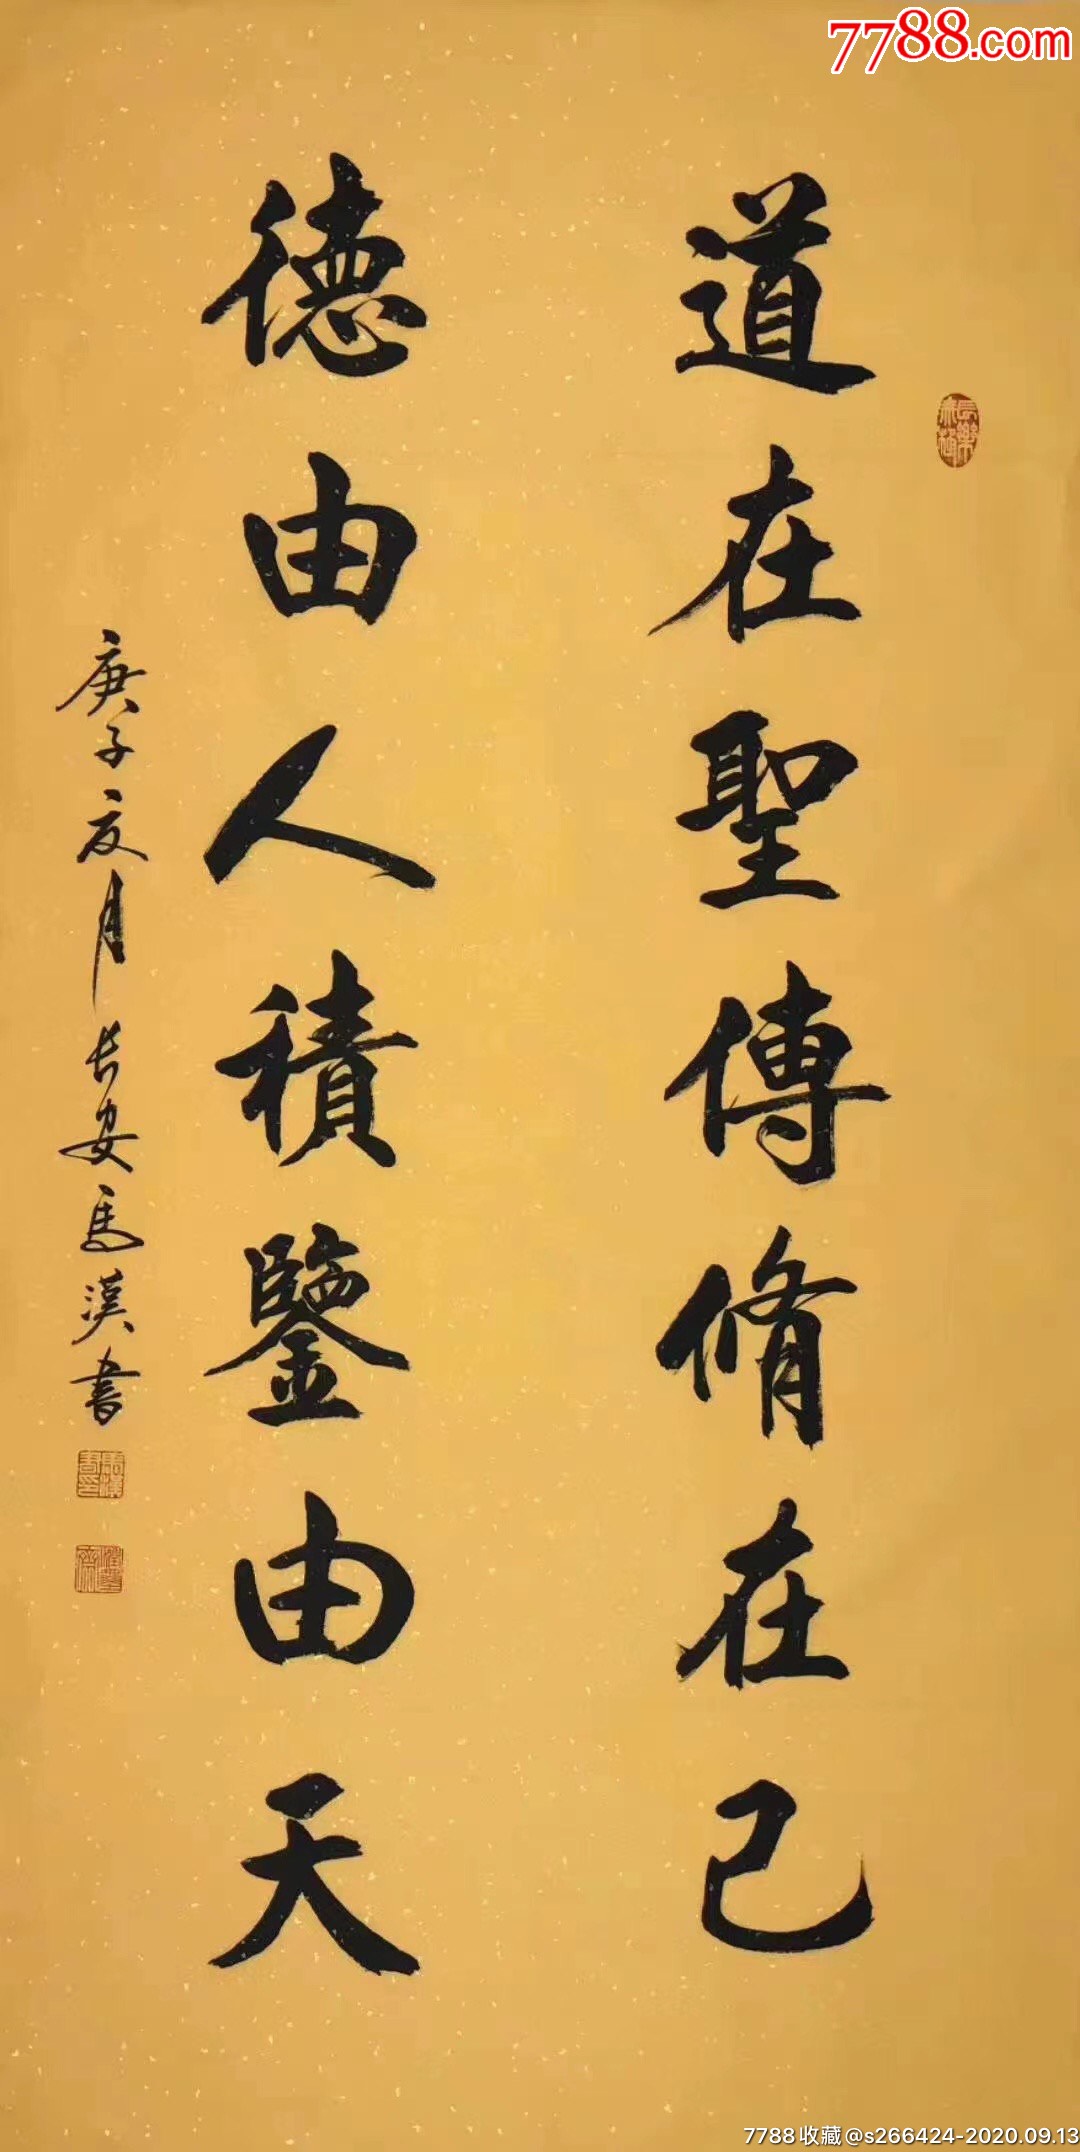 7788.com
道在聖傳脩在己
德由人積鑒由天
庚子夏月长安馬漢書
7788收藏@s266424-2020.09.13